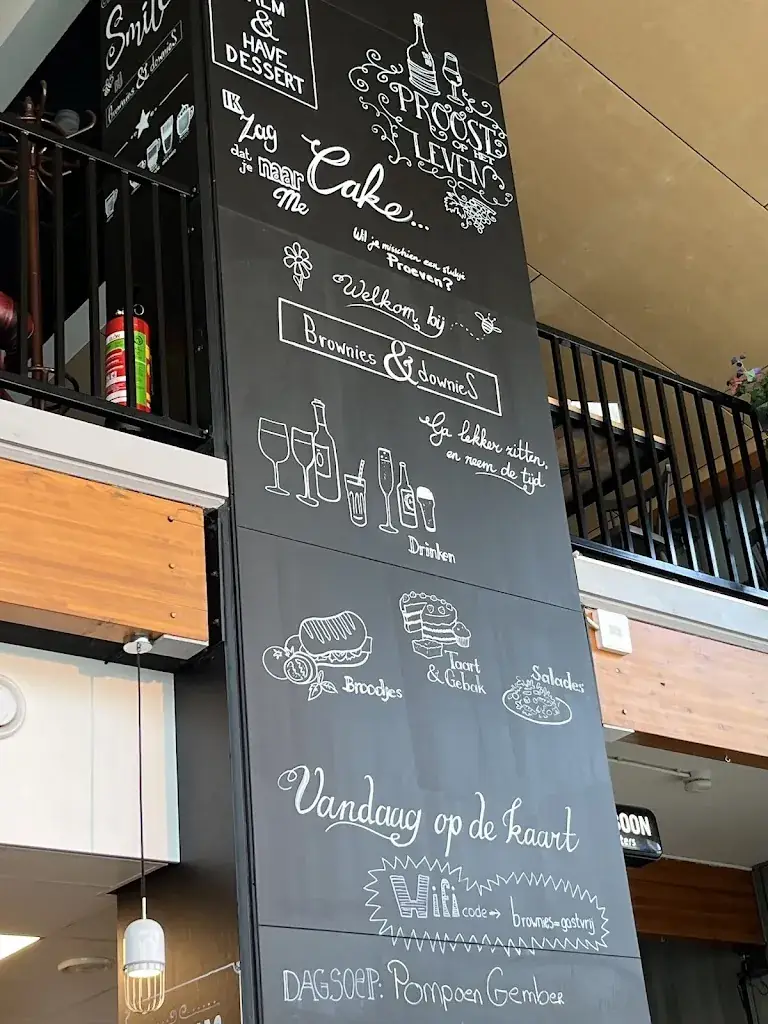 Smile
Brownies & downieS
&
HAVE
DESSERT
PROOST
OP HET
LEVEN
IK
Zag
dat
je
naar
Me
Cake...
Wil je misschien een stukje
Proeven?
Welkom bij
Brownies & downieS
Ga lekker zitten,
en neem de tijd
Drinken
Broodjes
Taart
& Gebak
Salades
Vandaag op de kaart
Wifi code → brownies=gastvrij
OON
ters
DAGSOEP: Pompoen Gember